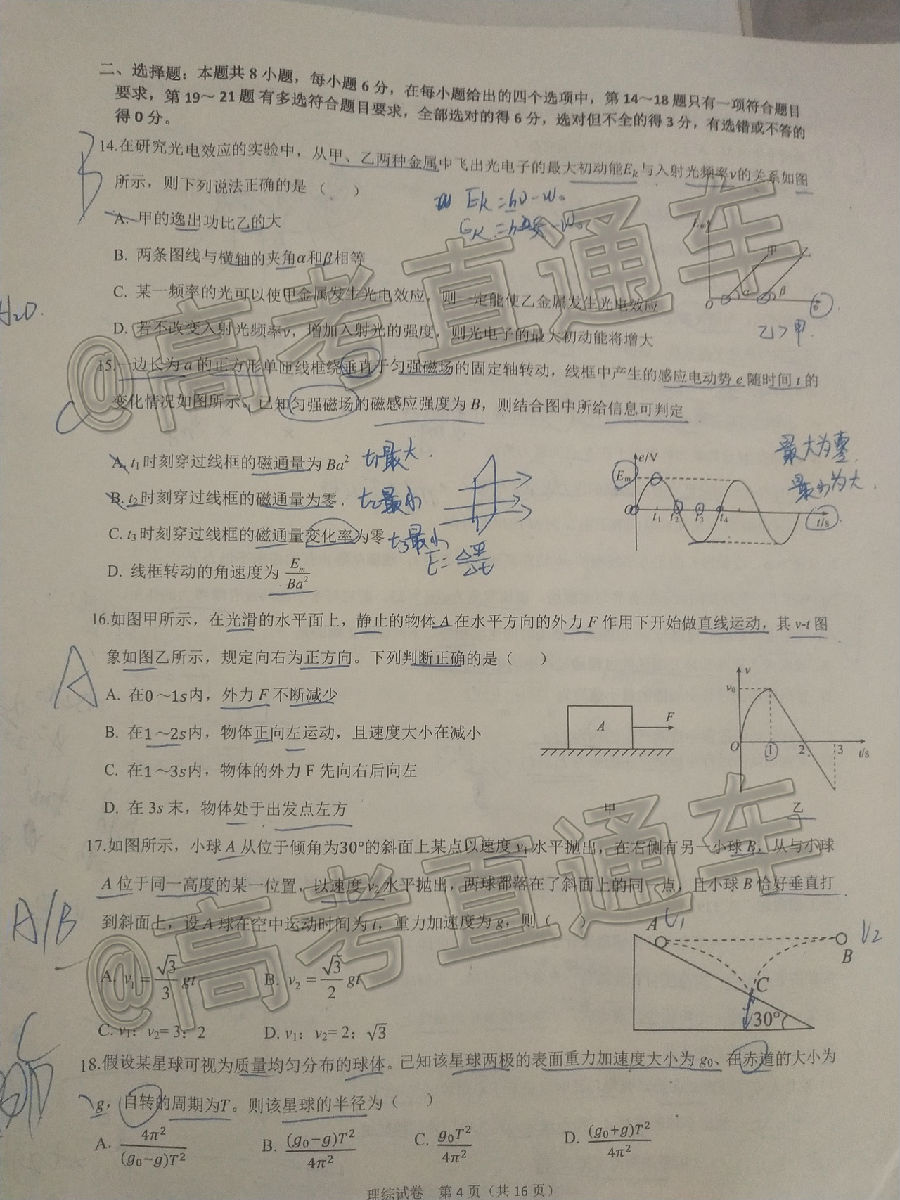 二、选择题：本题共 8 小题，每小题 6 分，在每小题给出的四个选项中，第 14～18 题只有一项符合题目
要求，第 19～ 21 题有多选符合题目要求，全部选对的得 6 分，选对但不全的得 3 分，有选错或不答的
得 0 分。
B
14.在研究光电效应的实验中，从甲、乙两种金属中飞出光电子的最大初动能Ek与入射光频率ν的关系如图
所示，则下列说法正确的是（ ）
A. 甲的逸出功比乙的大
B. 两条图线与横轴的夹角α和β相等
C. 某一频率的光可以使甲金属发生光电效应，则一定能使乙金属发生光电效应
D. 若不改变入射光频率ν，增加入射光的强度，则光电子的最大初动能将增大
Ek=hν-W₀
乙>甲
15.一边长为 a 的正方形单匝线框绕垂直于匀强磁场的固定轴转动，线框中产生的感应电动势 e 随时间 t 的
变化情况如图所示，已知匀强磁场的磁感应强度为 B，则结合图中所给信息可判定
C
A. t₁时刻穿过线框的磁通量为 Ba²
t₁最大
B. t₂时刻穿过线框的磁通量为零
t₂最小
C. t₃时刻穿过线框的磁通量变化率为零
t₃最小
D. 线框转动的角速度为 Em/Ba²
E=ΔΦ/Δt
e/V
Em
O t₁ t₂ t₃ t₄ t/s
最大为零
最小为大
16.如图甲所示，在光滑的水平面上，静止的物体 A 在水平方向的外力 F 作用下开始做直线运动，其 v-t 图
象如图乙所示，规定向右为正方向。下列判断正确的是（ ）
A
A. 在0～1s内，外力 F 不断减少
B. 在1～2s内，物体正向左运动，且速度大小在减小
C. 在1～3s内，物体的外力 F 先向右后向左
D. 在 3s 末，物体处于出发点左方
A F
甲
v
v₀
O 1 2 3 t/s
乙
17.如图所示，小球 A 从位于倾角为30°的斜面上某点以速度 v₁水平抛出，在左侧有另一小球 B，从与小球
A 位于同一高度的某一位置，以速度 v₂水平抛出，两球都落在了斜面上的同一点，且小球 B 恰好垂直打
到斜面上，设 A 球在空中运动时间为 t，重力加速度为 g，则（ ）
A/B
A. v₁ = √3/3 gt B. v₂ = √3/2 gt
C. v₁：v₂= 3：2 D. v₁：v₂= 2：√3
A V₁
V₂
B
C
30°
18.假设某星球可视为质量均匀分布的球体。已知该星球两极的表面重力加速度大小为 g₀、在赤道的大小为
g，自转的周期为T。则该星球的半径为（ ）
A. 4π²/(g₀−g)T² B. (g₀−g)T²/4π² C. g₀T²/4π² D. (g₀+g)T²/4π²
理综试卷 第 4 页（共 16 页）
@高考直通车
@高考直通车